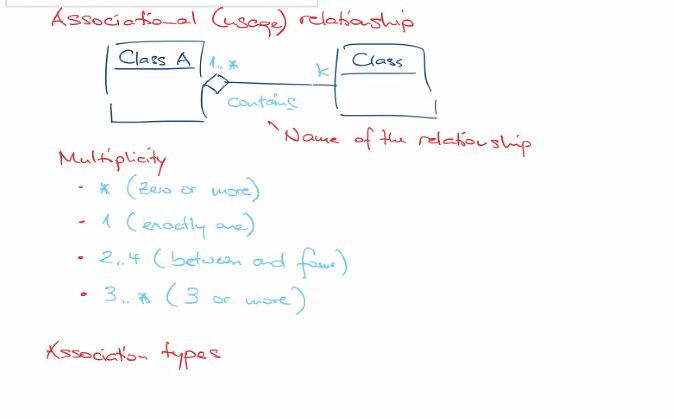 Associational (usage) relationship
Class A 1..* * Class
contains
Name of the relationship
Multiplicity
- * (zero or more)
- 1 (exactly one)
- 2..4 (between and four)
- 3..* (3 or more)
Association types